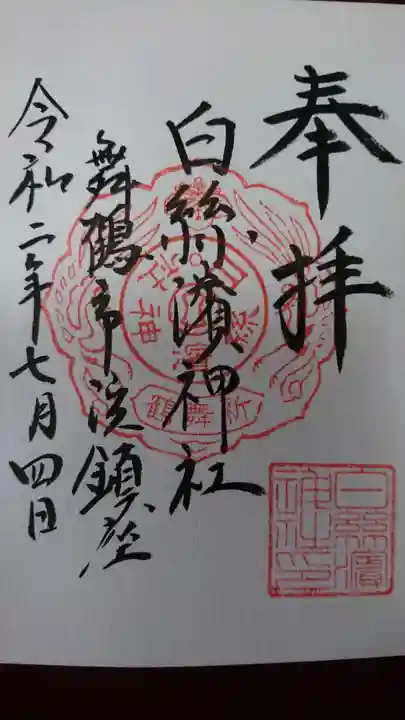 奉拝
白絲濱神社
舞鶴市浜鎮座
令和二年七月四日
新舞鶴
白絲濱神社印